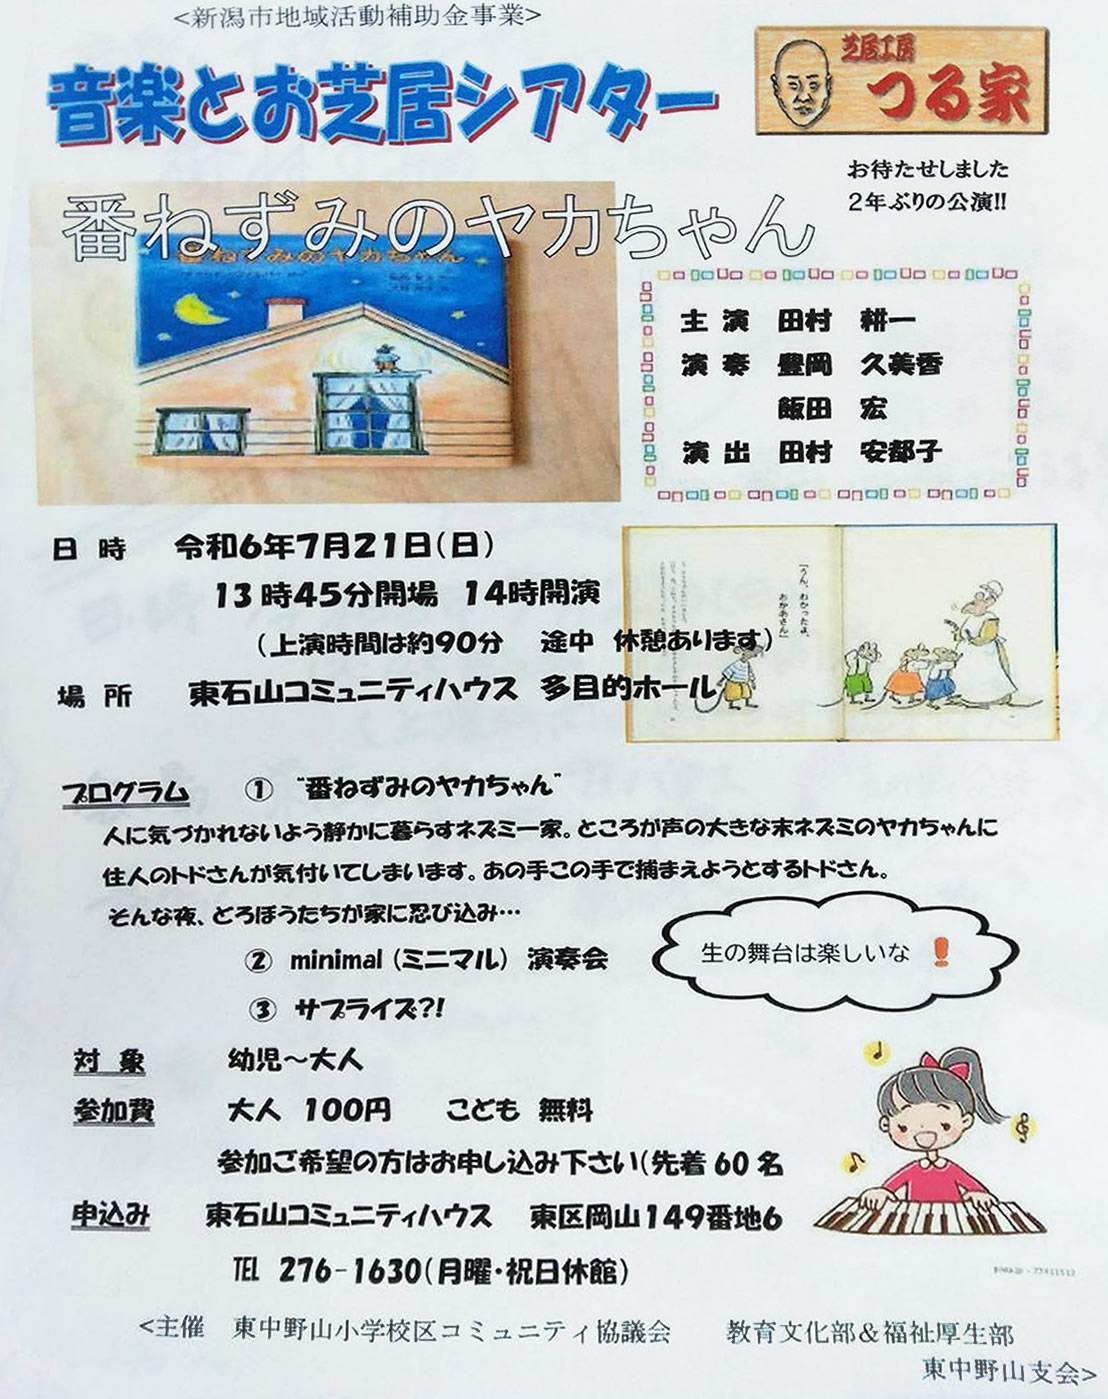 <新潟市地域活動補助金事業>
音楽とお芝居シアター
芝居工房
つる家
お待たせしました
2年ぶりの公演!!
番ねずみのヤカちゃん
番ねずみのヤカちゃん
主 演 田村 耕一
演 奏 豊岡 久美香
飯田 宏
演 出 田村 安都子
日 時 令和6年7月21日(日)
13時45分開場 14時開演
(上演時間は約90分 途中 休憩あります)
場 所 東石山コミュニティハウス 多目的ホール
「うん、わかったよ、
おかあさん」
プログラム ① "番ねずみのヤカちゃん"
人に気づかれないよう静かに暮らすネズミ一家。ところが声の大きな末ネズミのヤカちゃんに
住人のトドさんが気付いてしまいます。あの手この手で捕まえようとするトドさん。
そんな夜、どろぼうたちが家に忍び込み…
② minimal (ミニマル) 演奏会
③ サプライズ?!
生の舞台は楽しいな❗
対 象 幼児~大人
参加費 大人 100円 こども 無料
参加ご希望の方はお申し込み下さい(先着60名
申込み 東石山コミュニティハウス 東区岡山149番地6
TEL 276-1630(月曜・祝日休館)
<主催 東中野山小学校区コミュニティ協議会 教育文化部&福祉厚生部
東中野山支会>